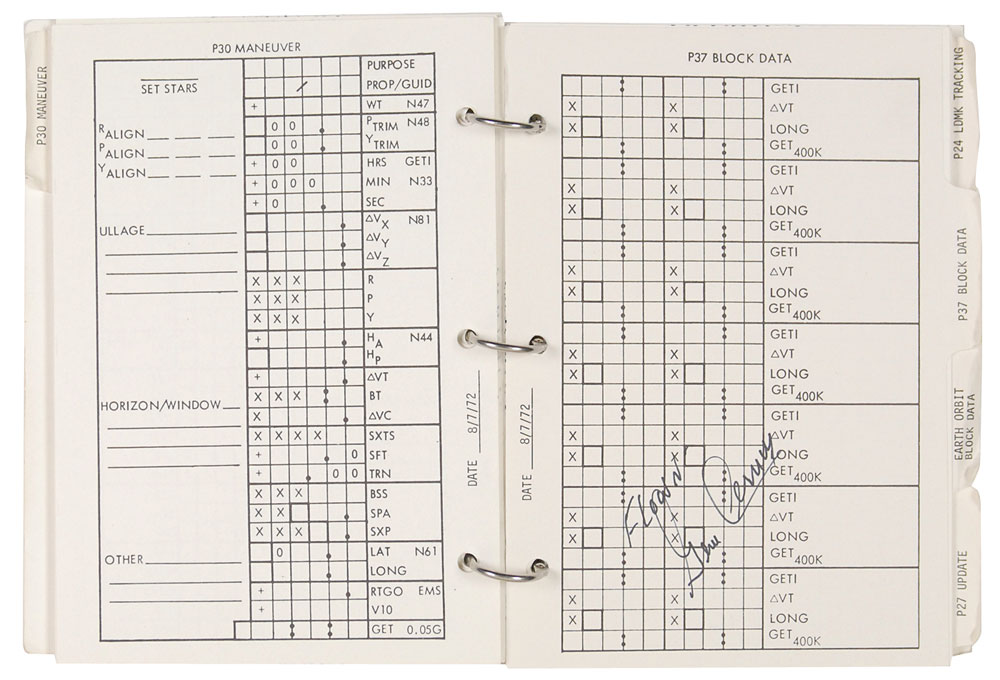 P30 MANEUVER
P30 MANEUVER
SET STARS
RALIGN
PALIGN
YALIGN
ULLAGE
HORIZON/WINDOW
OTHER
PURPOSE
/ PROP/GUID
+ WT N47
0 0 PTRIM N48
0 0 YTRIM
+ 0 0 HRS GETI
+ 0 0 0 MIN N33
+ 0 SEC
ΔVX N81
ΔVY
ΔVZ
X X X R
X X X P
X X X Y
+ HA N44
HP
+ ΔVT
X X X BT
X ΔVC
X X X X SXTS
+ 0 SFT
+ 0 0 TRN
X X X BSS
X X SPA
X X X SXP
0 LAT N61
LONG
+ RTGO EMS
+ V10
GET 0.05G
DATE 8/7/72
DATE 8/7/72
P37 BLOCK DATA
GETI
X X ΔVT
X X LONG
GET 400K
GETI
X X ΔVT
X X LONG
GET 400K
GETI
X X ΔVT
X X LONG
GET 400K
GETI
X X ΔVT
X X LONG
GET 400K
GETI
X X ΔVT
X X LONG
GET 400K
GETI
X X ΔVT
X X LONG
GET 400K
GETI
X X ΔVT
X X LONG
GET 400K
Flown
Gene Cernan
P24 LDMK TRACKING
P37 BLOCK DATA
EARTH ORBIT
BLOCK DATA
P27 UPDATE